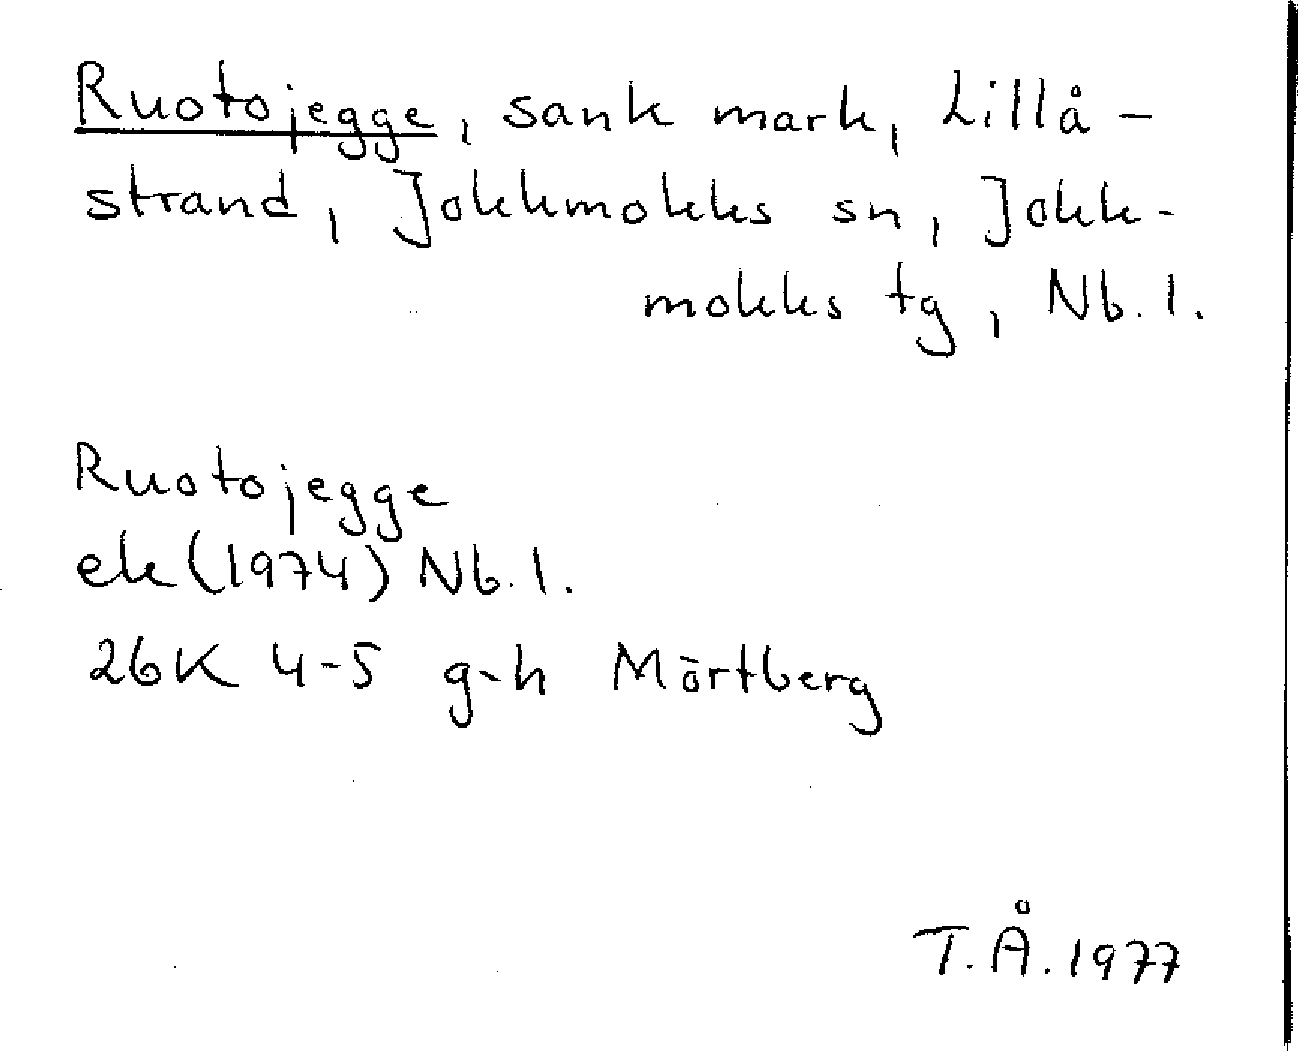 Ruotojegge, sank mark, Lillå-
strand, Jokkmokks sn, Jokk-
mokks tg, Nb. l.
Ruotojegge
ek (1974) Nb. l.
26K 4-5 g-h Mörtberg
T.Å. 1977